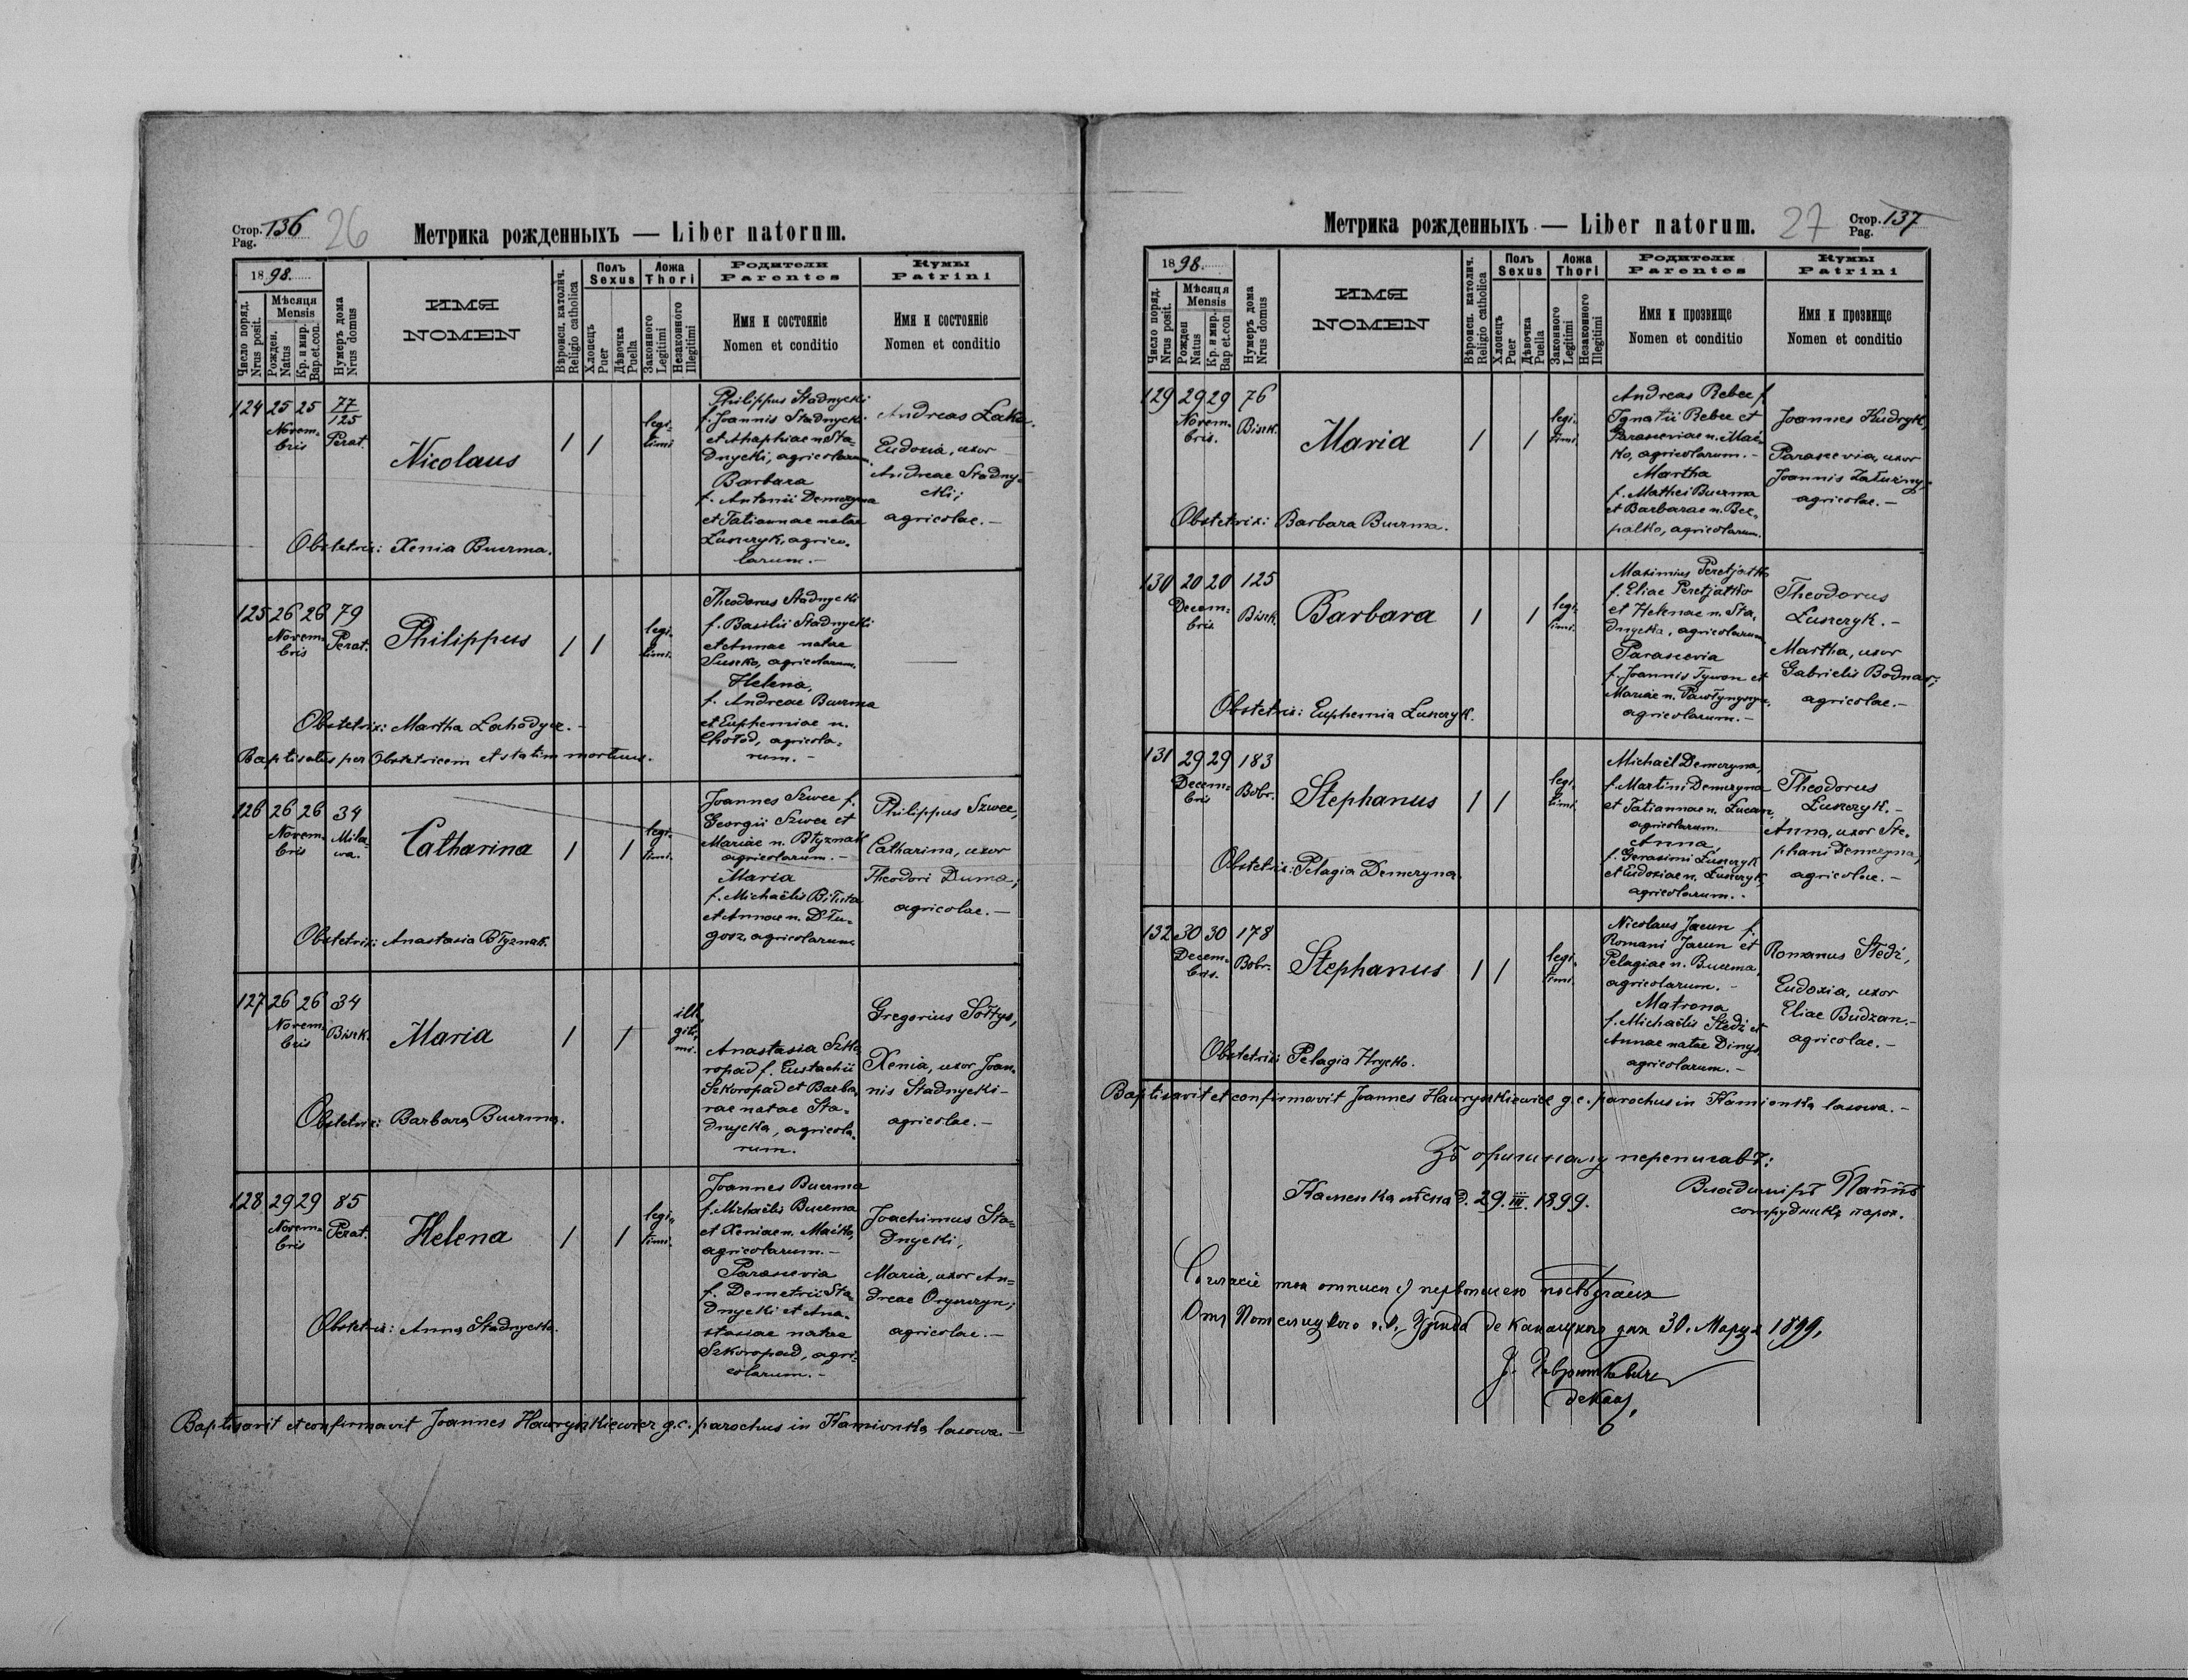 Стор. 136
Pag.
26
Метрика рожденныхъ — Liber natorum.
1898.
Число поряд.
Nrus posit.
Мѣсяця
Mensis
Рожден.
Natus
Кр. и мир.
Bap.et.con.
Нумеръ дома
Nrus domus
ИМЯ
NOMEN
Вѣроисп. католич.
Religio catholica
Полъ
Sexus
Хлопецъ
Puer
Дѣвочка
Puella
Ложа
Thori
Законного
Legitimi
Незаконного
Illegitimi
Родители
Parentes
Имя и состояніе
Nomen et conditio
Кумы
Patrini
Имя и состояніе
Nomen et conditio
124 25 25 77/125
Novem-
bris
Perat.
Nicolaus
legi-
timi
Philippus Stadnycki
f. Joannis Stadnycki
et Ahaphiae n. Sta-
dnycki, agricolarum.
Barbara
f. Antonii Demczyna
et Tatiannae natae
Luszczyk, agrico-
larum. -
Andreas
Eudoxia, uxor
Andreae Stadny-
cki;
agricolae. -
Obstetrix: Xenia Buczma.
125 26 26 79
Novem-
bris
Perat.
Philippus
legi-
timi.
Theodorus Stadnycki
f. Basilii Stadnycki
et Annae natae
Suszko, agricolarum.
Helena,
f. Andreae Buczma
et Euphemiae n.
Chołod, agricola-
rum. -
Obstetrix: Martha -
Baptisatus per Obstetricem et statim mortuus.
126 26 26 34
Novem-
bris
Mila-
wa.
Catharina
legi-
timi.
Joannes Szwec f.
Georgii Szwec et
Mariae n. Błyznak
agricolarum. -
Maria
f. Michaëlis
et Annae n. Dłu-
gosz, agricolarum.
Philippus Szwec,
Catharina, uxor
Theodori Duma;
agricolae. -
Obstetrix: Anastasia Błyznak.
127 26 26 34
Novem-
bris
Bisck.
Maria
ille-
giti-
mi.
Anastasia Szko-
ropad f. Eustachii
Szkoropad et Barba-
rae natae Sta-
dnycka, agricola-
rum.
Gregorius Sołtys,
Xenia, uxor Joan-
nis Stadnycki -
agricolae. -
Obstetrix: Barbara Buczma.
128 29 29 85
Novem-
bris
Perat.
Helena
legi-
timi.
Joannes Buczma
f. Michaëlis Buczma
et Xeniae n. Maćko,
agricolarum. -
Parascevia
f. Demetrii Sta-
dnycki et Ana-
stasiae natae
Szkoropad, agri-
colarum. -
Joachimus Sta-
dnycki,
Maria, uxor An-
dreae Oryszczyn;
agricolae. -
Obstetrix: Anna Stadnycka.
Baptisavit et confirmavit Joannes Hawryszkiewicz g.c. parochus in Kamionka lasowa. -
Метрика рожденныхъ — Liber natorum.
27
Стор. 137
Pag.
1898.
Число поряд.
Nrus posit.
Мѣсяця
Mensis
Рожден
Natus
Кр. и мир.
Bap et.con
Нумеръ дома
Nrus domus
ИМЯ
NOMEN
Вѣроисп. католич.
Religio catholica
Полъ
Sexus
Хлопецъ
Puer
Дѣвочка
Puella
Ложа
Thori
Законного
Legitimi
Незаконного
Illegitimi
Родители
Parentes
Имя и прозвище
Nomen et conditio
Кумы
Patrini
Имя и прозвище
Nomen et conditio
129 29 29 76
Novem-
bris.
Bisck.
Maria
legi-
timi.
Andreas Rebec f.
Ignatii Rebec et
Parasceviae n. Mać-
ko, agricolarum. -
Martha
f. Mathei Buczma
et Barbarae n. Bez-
palko, agricolarum.
Joannes Kudryk,
Parascevia, uxor
Joannis Załużny;
agricolae. -
Obstetrix: Barbara Buczma.
130 20 20 125
Decem-
bris
Bisck.
Barbara
legi-
timi.
Maximius Peretjatko
f. Eliae Peretjatko
et Helenae n. Sta-
dnycka, agricolarum
Parascevia
f. Joannis Tywon et
Mariae n.
agricolarum. -
Theodorus
Luszczyk. -
Martha, uxor
Gabrielis Bodnar;
agricolae. -
Obstetrix: Euphemia Luszczyk.
131 29 29 183
Decem-
bris
Bobr.
Stephanus
legi-
timi.
Michaël Demczyna,
f. Martini Demczyna
et Tatiannae n.
agricolarum.
Anna,
f. Gerasimi Luszczyk
et Eudoxiae n. Luszczyk,
agricolarum. -
Theodorus
Luszczyk. -
Anna, uxor Ste-
phani Demczyna,
agricolae. -
Obstetrix: Pelagia Demczyna.
132 30 30 178
Decem-
bris.
Bobr.
Stephanus
legi-
timi.
Nicolaus Jacun f.
Romani Jacun et
Pelagiae n. Buczma,
agricolarum. -
Matrona
f. Michaëlis Śledź et
Annae natae Dinys,
agricolarum. -
Romanus Śledź,
Eudoxia, uxor
Eliae Budzan. -
agricolae. -
Obstetrix: Pelagia Hrycko.
Baptisavit et confirmavit Joannes Hawryszkiewicz g.c. parochus in Kamionka lasowa. -
Зъ оригиналу переписавъ:
Каменка лѣсна д. 29. III. 1899.
Владимиръ
сотрудникъ парох.
Согласіе той отписи съ первописею
Отъ
дня 30. Марця 1899.
декан,